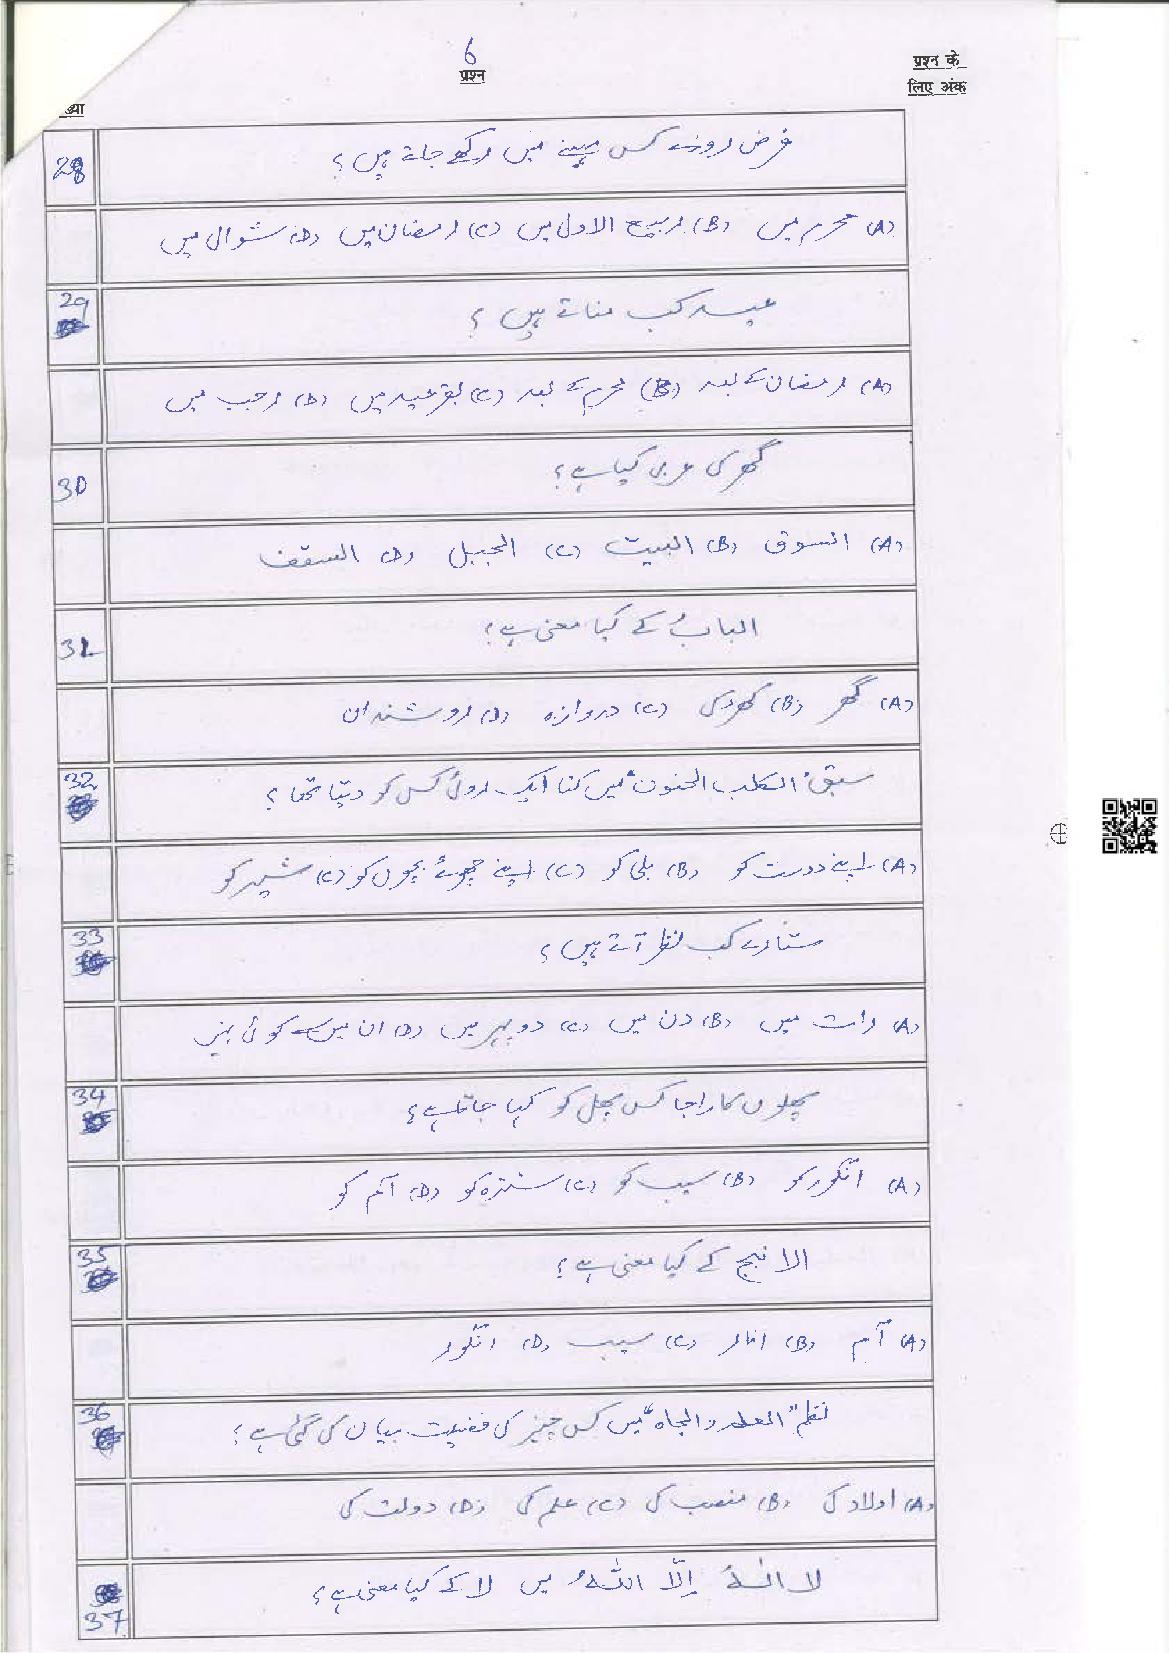 6
प्रश्न
प्रश्न के
लिए अंक
ख्या
28 فرض روزے کس مہینے میں رکھے جاتے ہیں؟
(A) محرم میں (B) ربیع الاول میں (C) رمضان میں (D) شوال میں
29 عید کب مناتے ہیں؟
(A) رمضان کے بعد (B) محرم کے بعد (C) بقرعید میں (D) رجب میں
30 گھر کی عربی کیا ہے؟
(A) السوق (B) البیت (C) الجبل (D) السقف
31 البابُ کے کیا معنی ہے؟
(A) گھر (B) کھڑکی (C) دروازہ (D) روشندان
32 سبق "الکلب الحنون" میں کتا ایک روٹی کس کو دیتا تھا؟
(A) اپنے دوست کو (B) بلی کو (C) اپنے چھوٹے بچوں کو (C) شیر کو
33 ستارے کب نظر آتے ہیں؟
(A) رات میں (B) دن میں (C) دوپہر میں (D) ان میں سے کوئی نہیں
34 پھلوں کا راجا کس پھل کو کہا جاتا ہے؟
(A) انگور کو (B) سیب کو (C) سنترہ کو (D) آم کو
35 الانبج کے کیا معنی ہے؟
(A) آم (B) انار (C) سیب (D) انگور
36 نظم "العلم والجاہ" میں کس چیز کی فضیلت بیان کی گئی ہے؟
(A) اولاد کی (B) منصب کی (C) علم کی (D) دولت کی
37 لا الٰہَ إلّا اللّٰہُ میں لا کے کیا معنی ہے؟